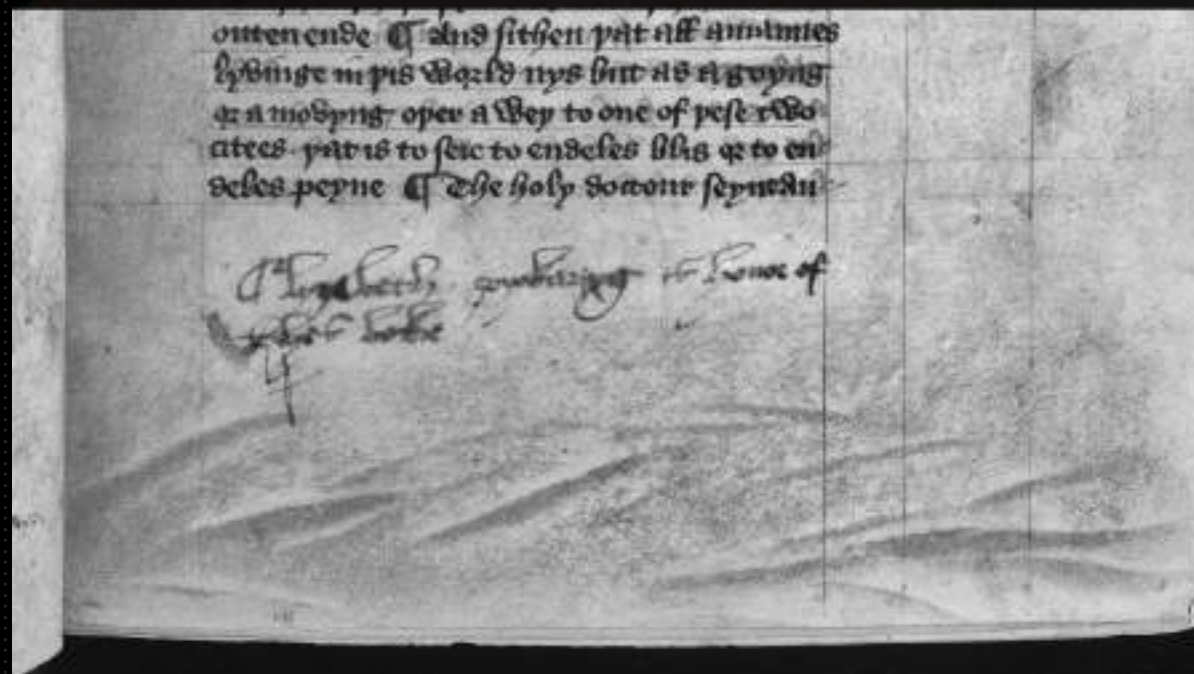 outen ende ¶ And sithen þat all
lyvinge in þis world nys but as a goyng
or a movyng oþer a wey to one of þese two
citees þat is to seie to endeles blis or to en
deles peyne ¶ The holy doctour seynt Au
Elyzabeth oowner of
boke